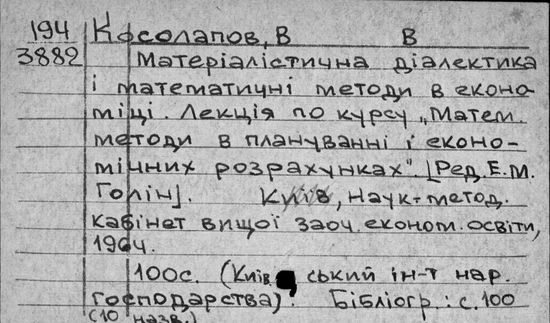 194 Косолапов, В В
3882 Матеріалістична діалектика
і математичні методи в еконо-
міці. Лекція по курсу „Матем.
методи в плануванні і еконо-
мічних розрахунках". [Ред. Е.М.
Голін]. Київ, наук.-метод.
кабінет вищої заоч. економ. освіти,
1964.
100с. (Київ ський ін-т нар.
господарства). Бібліогр.: с.100
(10 назв.)